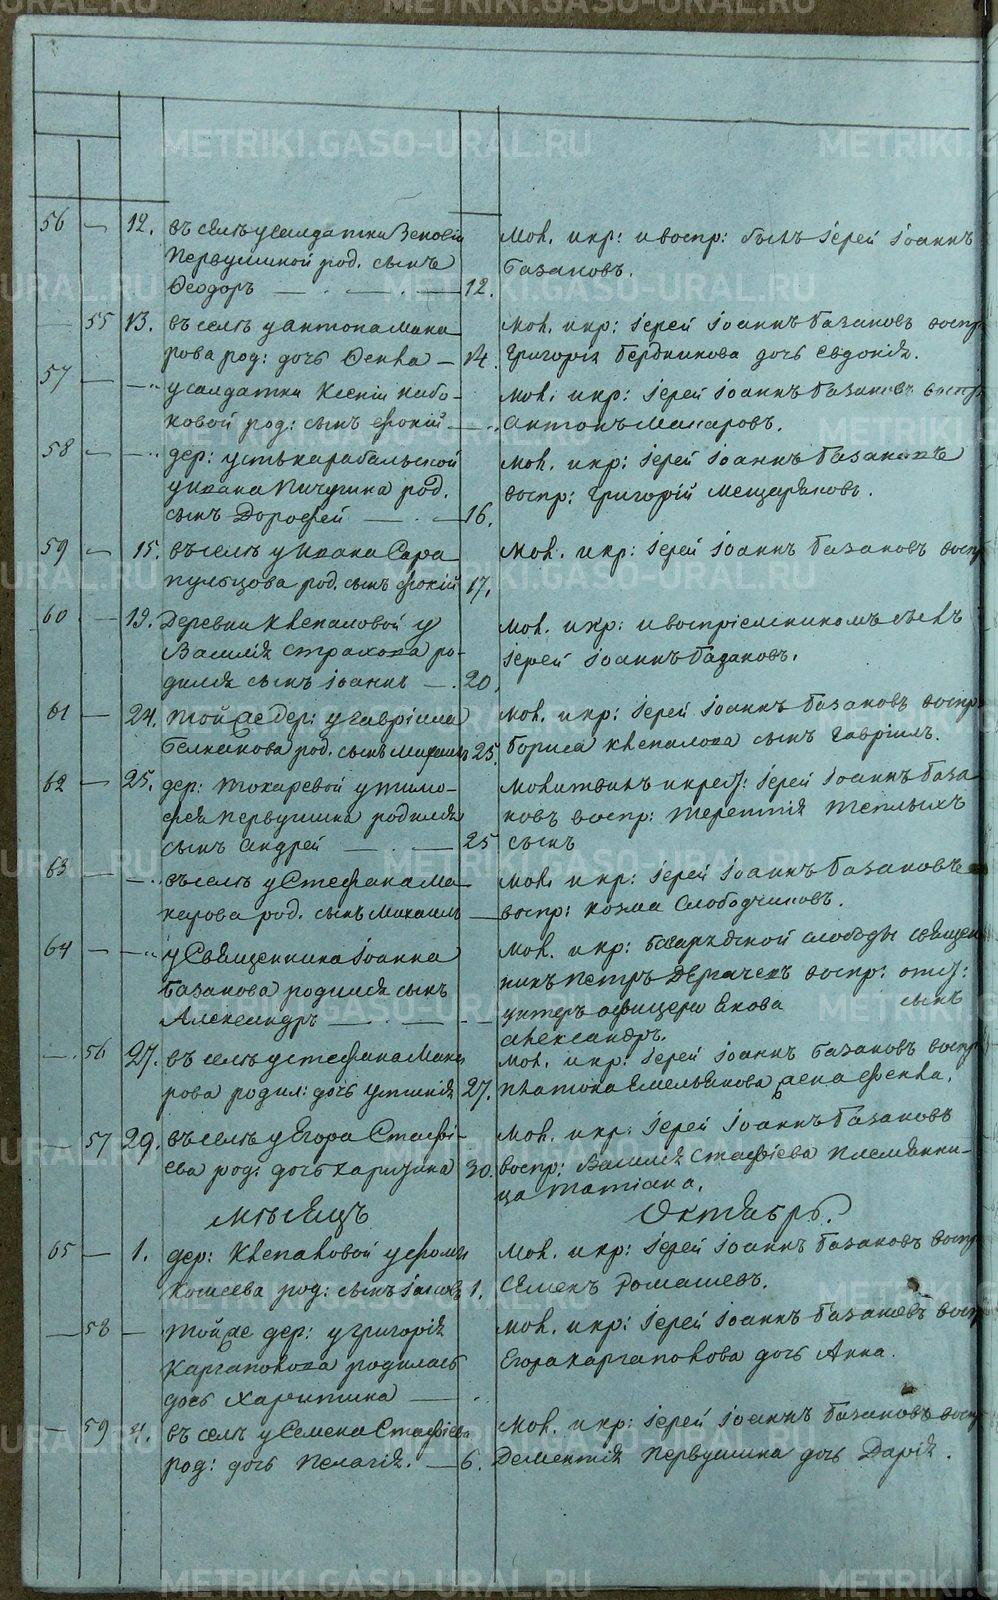 56 — 12. въ селѣ у салдатки Зеновіи Мол. и кр: и воспр: былъ Іерей Іоаннъ
Первушиной род. сынъ Базановъ.
Ѳеодоръ — 12.
— 55 13. въ селѣ у Антона Мака- Мол. и кр: Іерей Іоаннъ Базановъ воспр
рова род: дочь Ѳекла — 14. Григорія Бердникова дочь Евдокія.
57 — —„ у салдатки Ксеніи Набо- Мол. и кр: Іерей Іоаннъ Базановъ воспр:
ковой род: сынъ Фокій — Антонъ Макаровъ.
58 — —„ дер: Устькарабольской Мол. и кр: Іерей Іоаннъ Базановъ
у Ивана Пичугина род. воспр: Григорій Мещеряковъ.
сынъ Дорофей — 16.
59 — 15. въ селѣ у Ивана Сара- Мол. и кр: Іерей Іоаннъ Базановъ воспр
пульцова род. сынъ Фокій 17.
60 — 19. Деревни Клепаловой у Мол. и кр: и воспріемникомъ былъ
Василія Страхова ро- Іерей Іоаннъ Базановъ.
дился сынъ Іоаннъ — 20.
61 — 24. той же дер: у Гавріила Мол. и кр: Іерей Іоаннъ Базановъ воспр
род. сынъ Михаилъ 25. Бориса Клепалова сынъ Гавріилъ.
62 — 25. дер: Токаревой у Тимо- Молитвилъ и крест: Іерей Іоаннъ База-
фея Первушина родился новъ воспр: Терентія Теплыхъ
сынъ Андрей — 25 сынъ
63 — —„ въ селѣ у Стефана Ма- Мол. и кр: Іерей Іоаннъ Базановъ
карова род. сынъ Михаилъ — воспр: Козма Слободчиковъ.
64 — —„ у Священника Іоанна Мол. и кр: Багарякской слободы священ-
Базанова родился сынъ никъ Петръ воспр: отст:
Александръ — унтеръ офицера сынъ
Александръ.
— 56 27. въ селѣ у Стефана Мака- Мол. и кр: Іерей Іоаннъ Базановъ воспр
рова родил: дочь Устинія 27. Платона Емельянова жена Фекла.
— 57 29. въ селѣ у Егора Стафі- Мол. и кр: Іерей Іоаннъ Базановъ
ева род: дочь Харитина 30. воспр: Василія Стафіева племянни-
ца Татіана.
Мѣсяцъ Октябрь.
65 — 1. дер: Клепаловой у Фомы Мол. и кр: Іерей Іоаннъ Базановъ воспр
род: сынъ Іаковъ 1. Семенъ Ромашевъ.
— 58 — той же дер: у Григорія Мол. и кр: Іерей Іоаннъ Базановъ воспр
Каргаполова родилась Егора Каргаполова дочь Анна.
дочь Харитина —
— 59 4. въ селѣ у Семена Стафіева Мол. и кр: Іерей Іоаннъ Базановъ воспр
род: дочь Пелагія. — 6. Дементія Первушина дочь Дарія.
METRIKI.GASO-URAL.RU